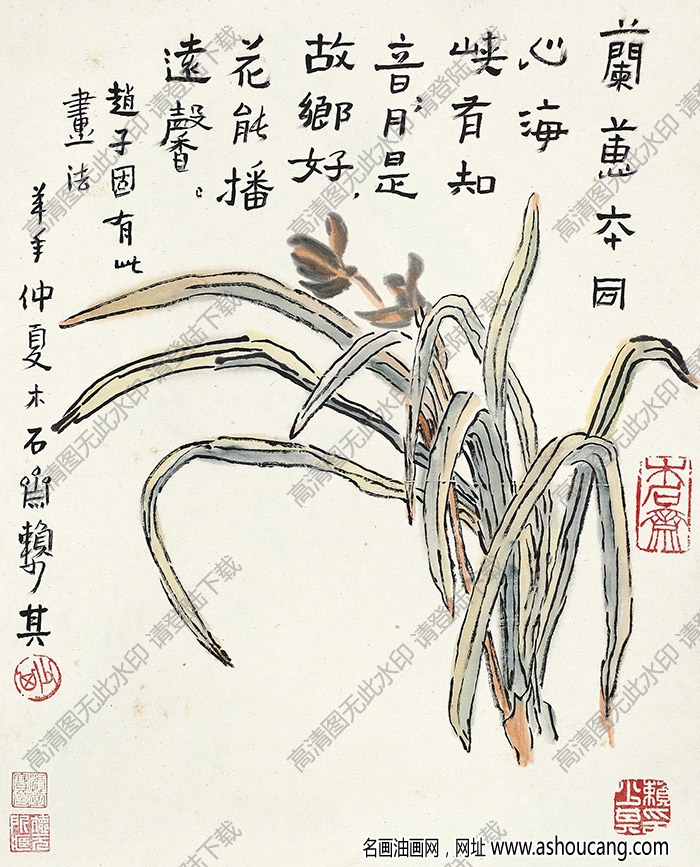 蘭蕙本同
心海
峽有知
音；月是
故鄉好，
花能播
遠馨。
趙子固有此
畫法
羊年仲夏木石齋賴少其
木石齋
高清图无此水印 请登陆下载
名画油画网，网址 www.ashoucang.com